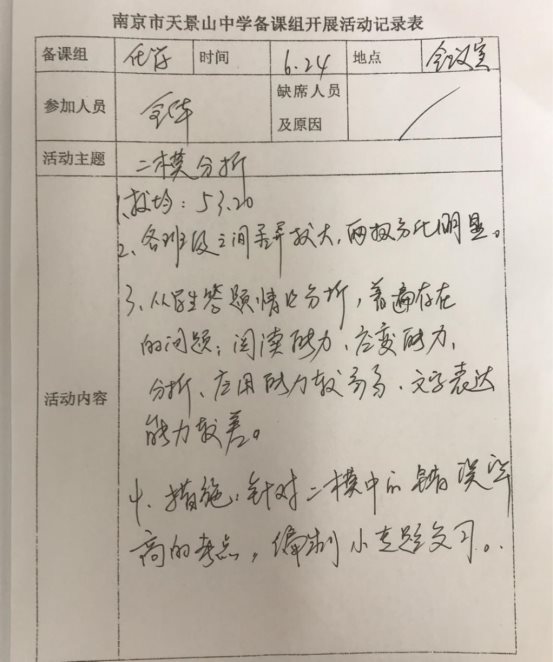 南京市天景山中学备课组开展活动记录表
备课组 化学 时间 6.24 地点 会议室
参加人员 全体 缺席人员及原因
活动主题 二模分析
活动内容
1、校均：53.20
2、各班级之间差异较大，两极分化明显。
3、从学生答题情况分析，普遍存在
的问题：阅读能力、应变能力、
分析、应用能力较弱、文字表达
能力较差。
4、措施：针对二模中的错误率
高的考点，编制小专题复习。